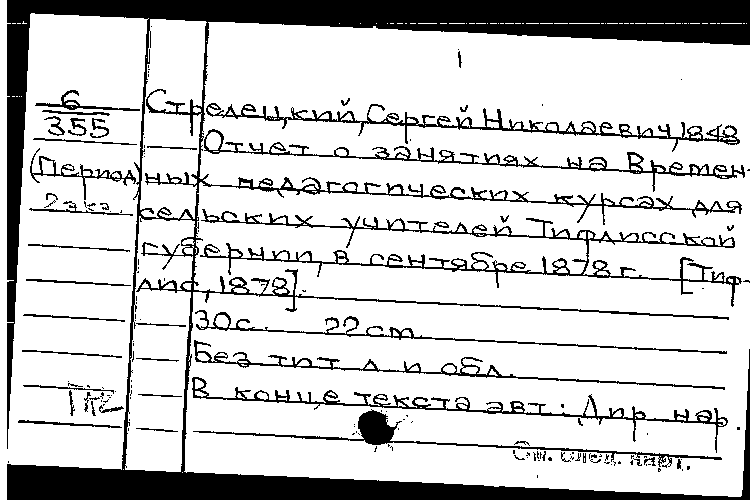 1
6
355
(Период)
2 экз.
Стрелецкий, Сергей Николаевич, 1848
Отчет о занятиях на Времен-
ных педагогических курсах для
сельских учителей Тифлисской
губернии, в сентябре 1878 г. [Тиф-
лис, 1878].
30 с. 22 см.
Без тит л и обл.
В конце текста авт: Дир нар.
См. след. карт.